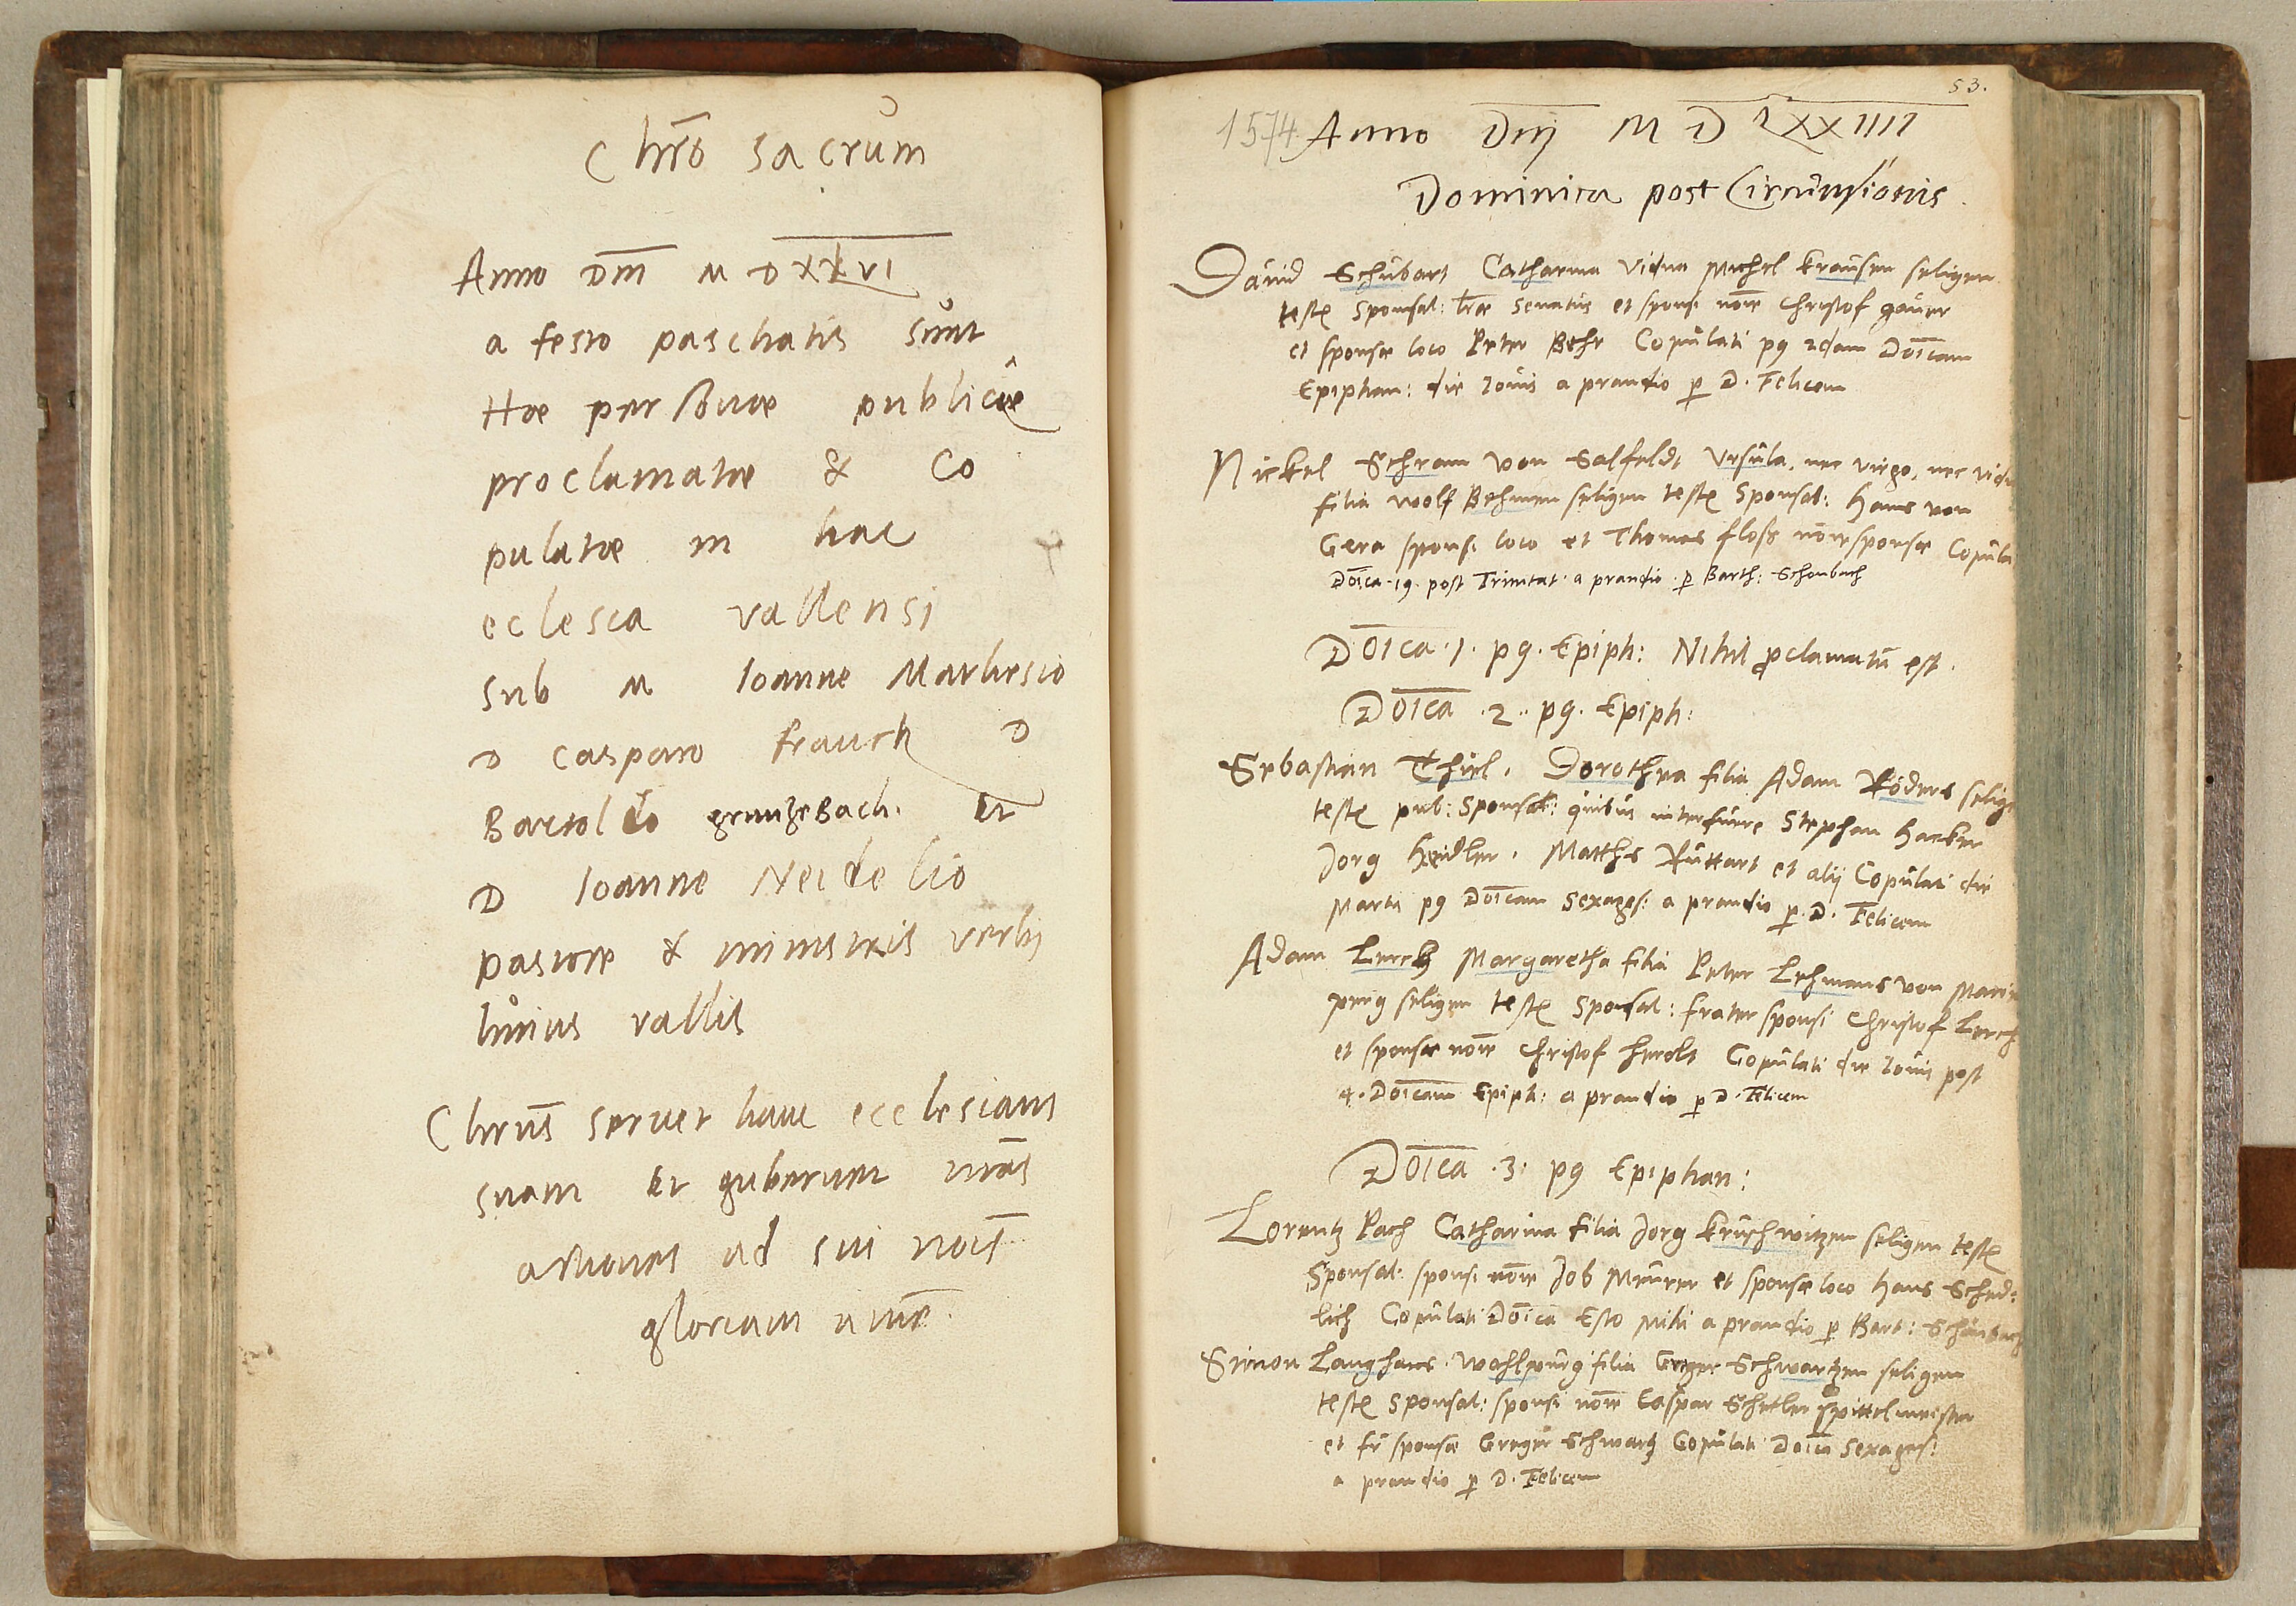 Chrō sacrům
Anno Dm̄ M D XLVI
a festo paschatis sůnt
Hæ personæ publicæ
proclamatæ & Co
pulatæ in hac
eclesia vallensi
sub M Ioanne Mathesio
D Casparo franck D
Bartoldo
D Ioanne Neidelio
pastore & ministris verbj
huius vallis
Chrūs servet hanc ecclesiam
suam et gubernet nrās
actiones ad sui noīs
gloriam amē.
53.
1574 Anno Dnj M D LXXIIII
Dominica post Circumsionis
David Schubart Catharina vidua Michel krausen seligen
teste Sponsal: lræ senatus et sponsi noīe Christof
et sponsæ loco Peter Behr Copulati p9 2dam Doīcam
Epiphan: die Iovis a prandio p D. Felicem
Nickel Schram von Salfeldt Ursula, nec virgo, nec vidu
filia Wolf Behmen seligen teste Sponsal: Hans von
Gera sponsi loco et Thomas floss noīe sponsæ Copula
Doīca .19. post Trinitat. a prandio. p Barth: Schonbach
Doīca .1. p9. Epiph: Nihil pclamatū est.
Doīca .2. p9. Epiph:
Sebastian Thiel. Dorothea filia Adam Röders selige
teste pub: Sponsal: quibus interfuere Stephan Hacker
Jorg Heidler. Matthes Ruttart et alij Copulati die
Martis p9 Doīcam Sexages: a prandio p. D. Felicem
Adam Lerch Margaretha filia Peter Lehmans von Marie
perg seligen teste Sponsal: frater sponsi Christof Lerch
et sponsæ noīe Christof Herolt Copulati die Iovis post
4. Doīcam Epiph: a prandio p D. Felicem
Doīca .3. p9 Epiphan:
Lorentz Pach Catharina filia Jorg kruschwitzen seligen teste
Sponsal: sponsi noīe Job Meurer et sponsæ loco Hans Sched:
lich Copulati Doīca Esto Mihi a prandio p Bart: Schönbach
Simon Langhans. Wahlpurg filia Greger Schwartzen seligen
teste Sponsal: sponsi noīe Caspar Schetler Spittelmeister
et fr sponsæ Greger Schwartz Copulati Doīca Sexages:
a prandio p D. Felicem